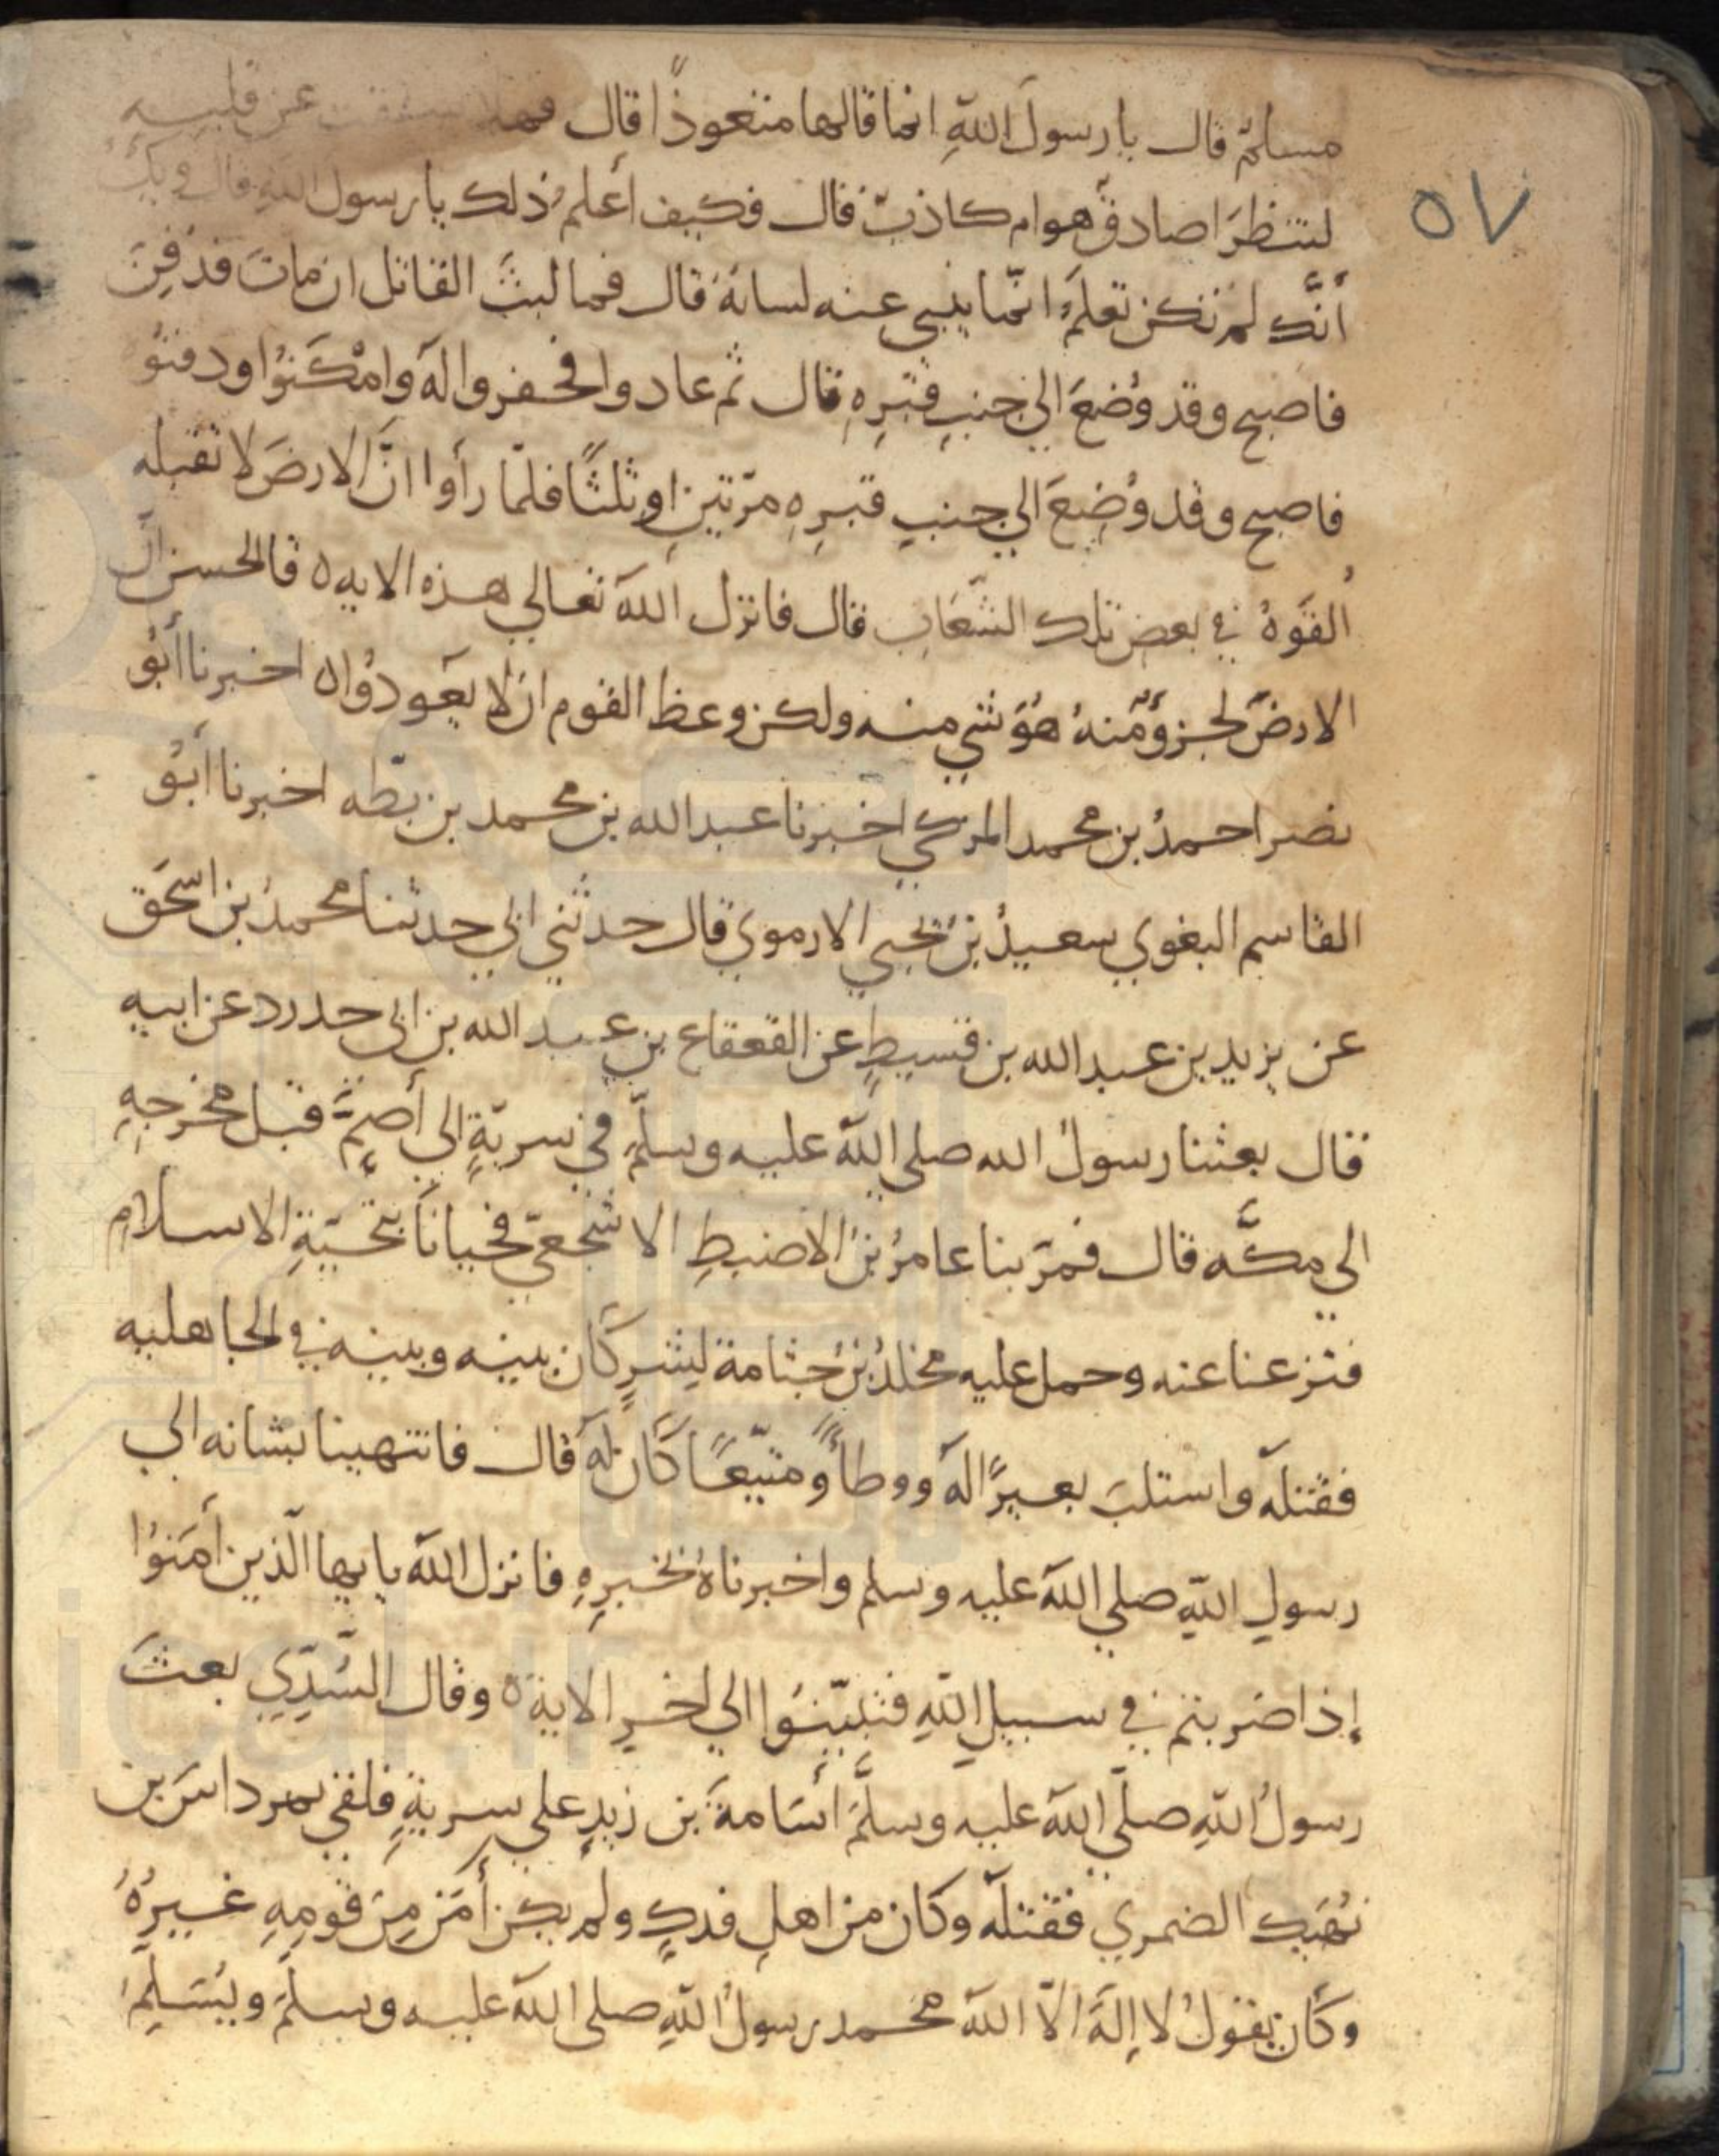 ٥٧
مسلم قال يا رسول اللهِ انما قالها متعوذًا قال فهلا شققت عن قلبه
لتنظرَ اصادقٌ هو ام كاذبٌ قال وكيف أعلم ذلك يا رسول اللهِ قال ويكَ
أنَّك لم تكن تعلمُ انّما يبني عنه لسانهُ قال فما لبثَ القاتل ان ماتَ فدُفِنَ
فاصبح وقد وُضعَ الي جنبِ قبرِهِ قال ثم عادوا فحفروا لهَ وامْكَنُوا ودفنُو
فاصبح وقد وُضِعَ الي جنبِ قبرِهِ مرّتينِ او ثلثًا فلمّا رأوا انَّ الارضَ لا تقبله
القَوهُ في بعض تلك الشّعَابِ قال فانزل اللهَ تعالي هذه الايه ٥ قالحسن انَّ
الارضَ لجزؤٌ مّنهُ هُوَ شيٌ منه ولكن وعظ القوم ان لا يعَودُوا ٥ اخبرنا أبُو
نصر احمدُ بن محمد المزكي اخبرنا عبدالله بن محمد بن بطّه اخبرنا أبُو
القاسم البغوي سعيدُ بنُ يحيي الارموي قال حدثني ابي حدثنا محمدُ بن اسحَق
عن يزيد بن عبدالله بن قسيطٍ عن القعقاع بن عبد الله بن ابي حدرد عن ابيه
قال بعثنا رسولُ الله صلي اللهَ عليه وسلّم في سريّةٍ الي أصِمٍّ قبل مخرجِهِ
الي مكَّه قال فمرّ بنا عامرُ بنُ الاضبطِ الاشجعيّ فحيانَا بتحيّةِ الاسلام
فنزعنا عنه وحمل عليه مخلدُ بنُ جثامة لِشرٍ كَان بينه وبينه في الجاهليه
فقتلَه واستلبَ بعيرًا لهَ ووطأً ومتيّعًا كَان لهَ قال فانتهينا بشانه الي
رسولِ اللهِ صلي اللهَ عليه وسلم واخبرناهُ بخبرِهِ فانزل اللهَ يايها الّذين أمَنوُا
إذا ضربتم في سبيلِ اللهِ فتبيّنوُا الي اخرِ الاية ٥ وقال السُّدّي بعثَ
رسولُ اللهِ صلّي اللهَ عليه وسلَّمَ أسَامةَ بن زيدٍ علي سريةٍ فلقي مرداسَ بن
نُهَيك الضمري فقتلَه وكان من اهلِ فدكٍ ولم يكن أمَن مِن قومِهِ غيرُهُ
وكَان يقولُ لا إلهَ الّا اللهَ محمد رسولُ اللهِ صلي اللهَ عليه وسلمَ ويُسَلِّمُ